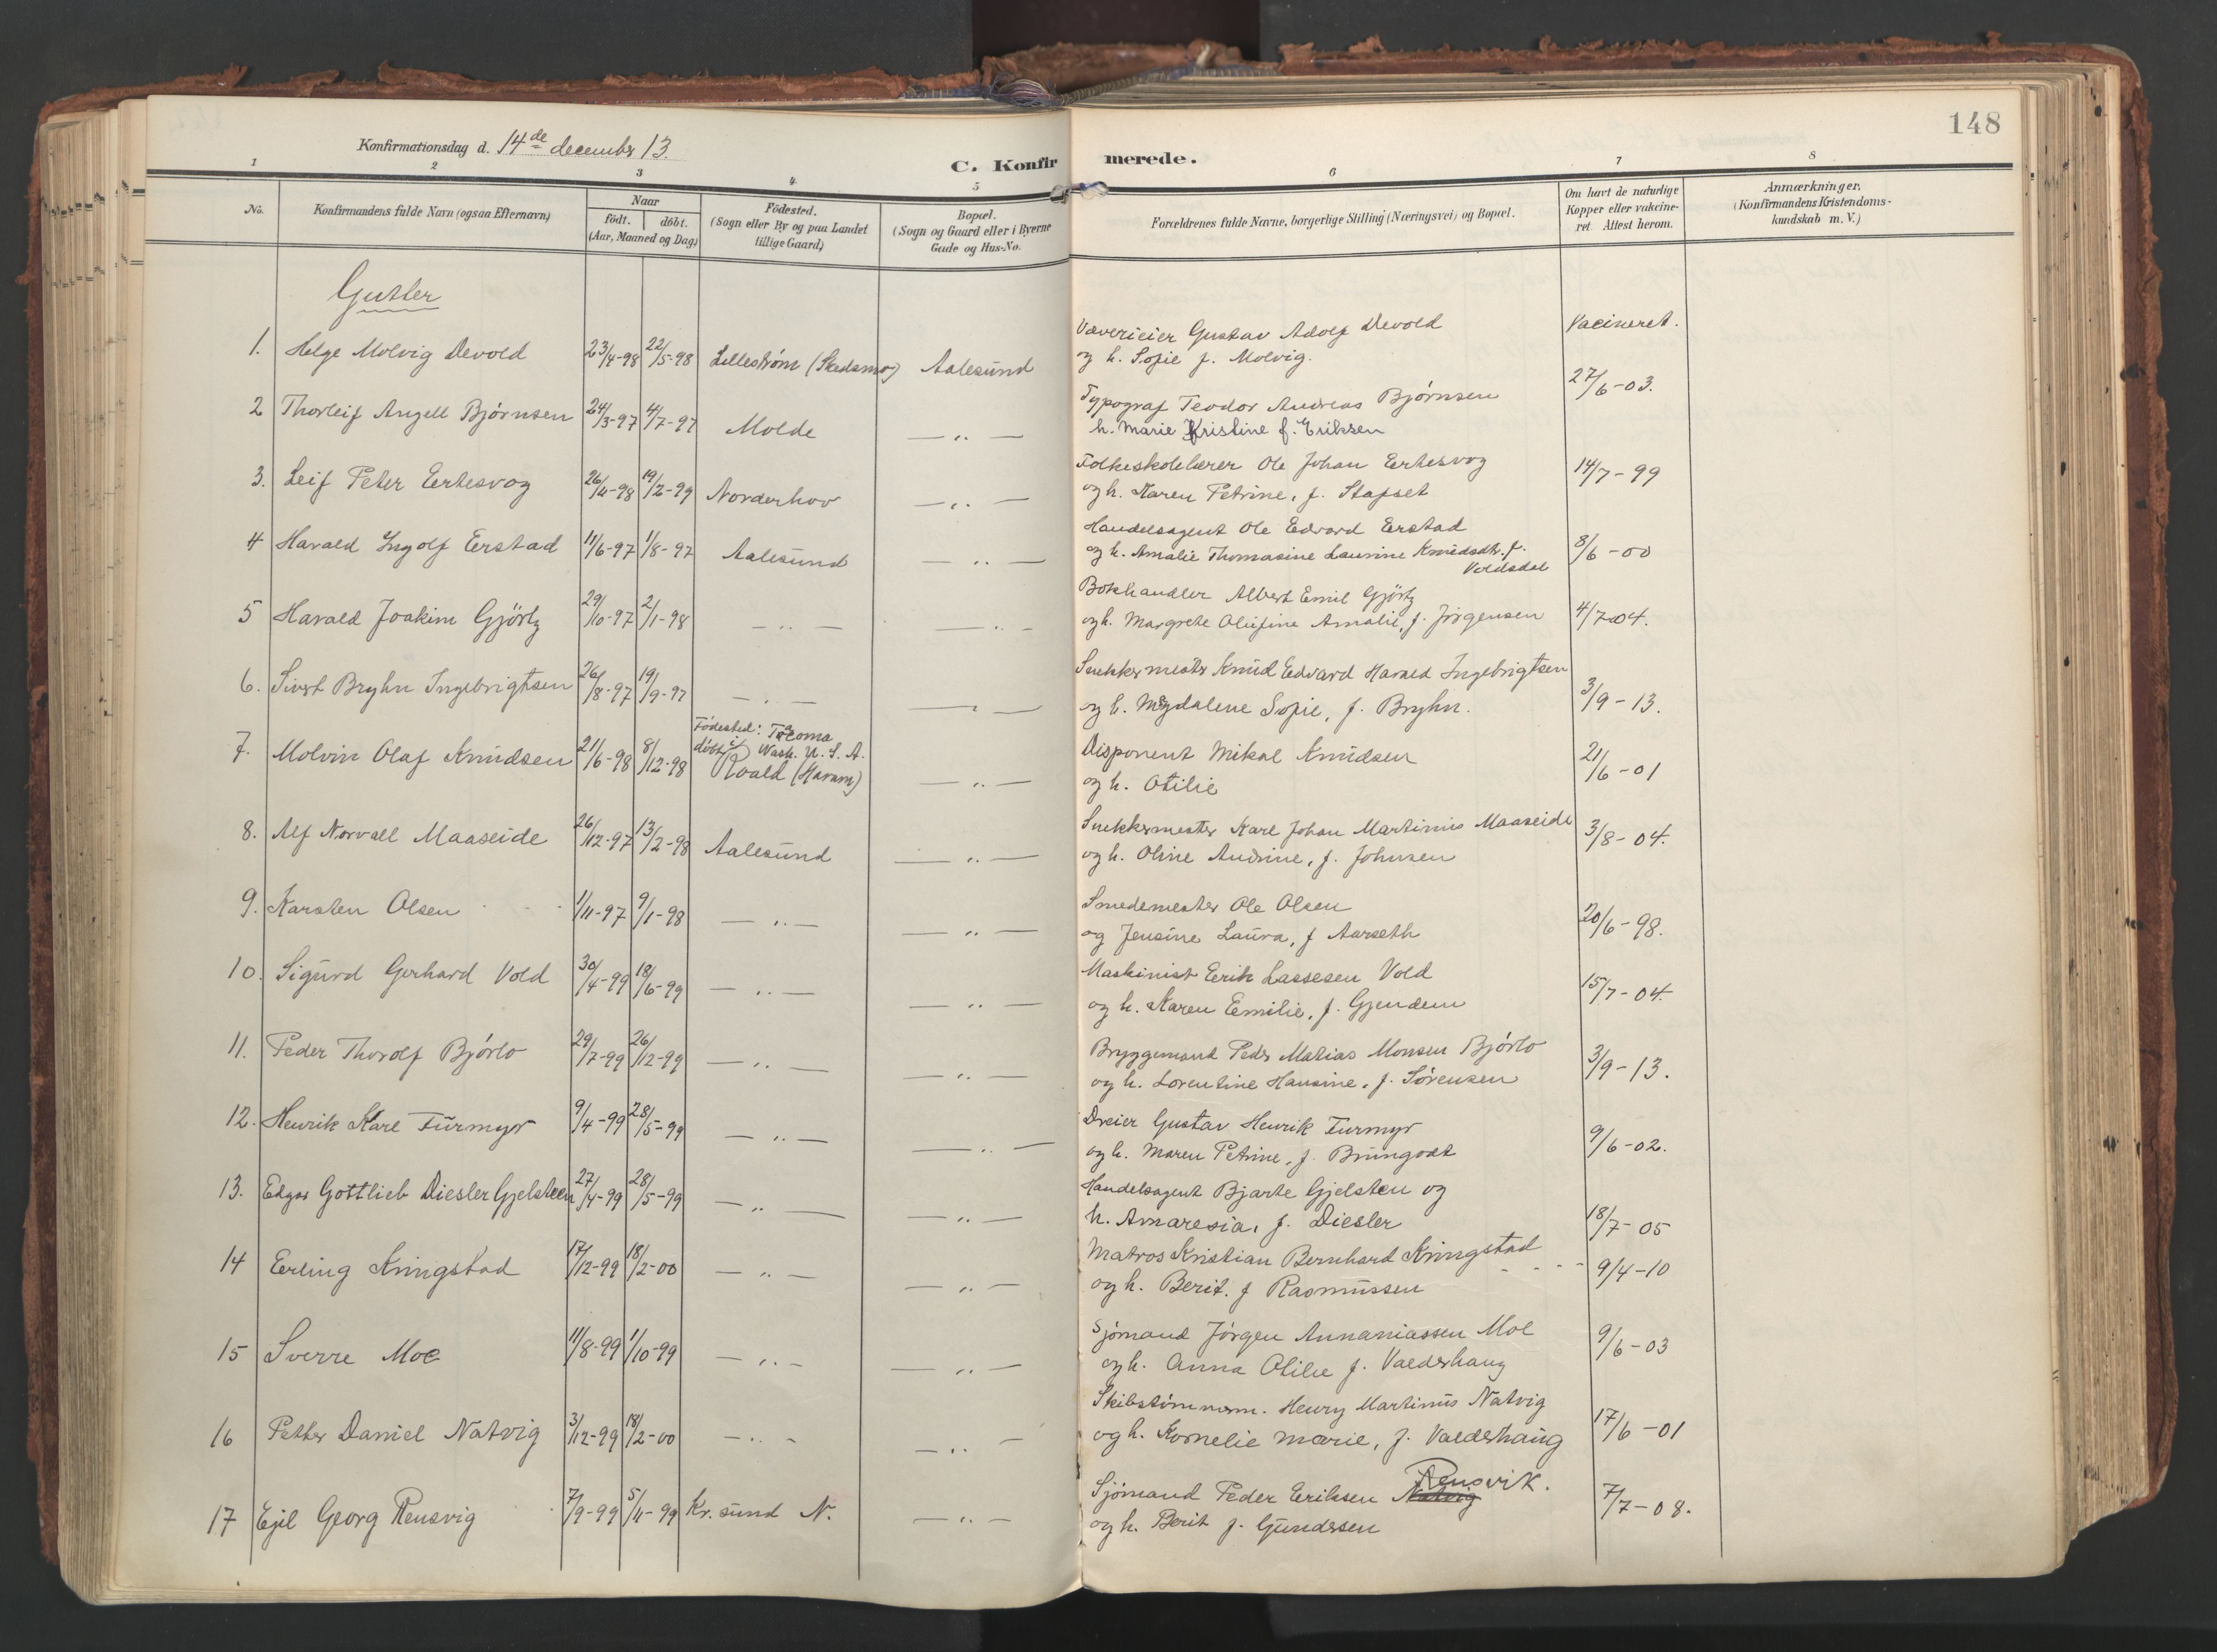 148
Konfirmationsdag d. 14de december 13.
C. Konfirmerede.
1 2 3 4 5 6 7 8
No.
Konfirmandens fulde Navn (ogsaa Efternavn)
Naar
födt. döbt.
(Aar, Maaned og Dag)
Födested.
(Sogn eller By og paa Landet
tillige Gaard)
Bopæl.
(Sogn og Gaard eller i Byerne
Gade og Hus-No.
Forældrenes fulde Navne, borgerlige Stilling (Næringsvei) og Bopæl.
Om havt de naturlige
Kopper eller vakcine-
ret. Attest herom.
Anmærkninger.
(Konfirmandens Kristendoms-
kundskab m. V.)
Gutter
1. Helge Molvig Devold 23/4-98 22/5-98 Lillestrøm (Skedsmo) Aalesund
Væverieier Gustav Adolf Devold
og h. Sofie f. Molvig.
Vacineret.
2 Thorleif Angell Bjørnsen 24/3-97 4/7-97 Molde — „ —
Typograf Teodor Andreas Bjørnsen
h. Marie Kristine f. Eriksen
27/6-03.
3. Leif Peter Ertesvog 26/11-98 19/2-99 Norderhov — „ —
Folkeskolelærer Ole Johan Ertesvog
og h. Karen Petrine, f. Stafset
14/7-99
4 Harald Ingolf Erstad 11/6-97 1/8-97 Aalesund — „ —
Handelsagent Ole Edvard Erstad
og h. Amalie Thomasine Laurine Knudsdtr. f.
Voldsdal
8/6-00
5 Harald Joakim Gjörtz 29/10-97 2/1-98 — „ — — „ —
Bokhandler Albert Emil Gjörtz
og h. Margrete Olufine Amalie, f. Jörgensen
4/7-04.
6. Sivert Bryhn Ingebrigtsen 26/8-97 19/9-97 — „ — — „ —
Snekkermester Knud Edvard Harald Ingebrigtsen
og h. Magdalene Sofie, f. Bryhn.
3/9-13.
7. Molvin Olaf Knudsen 21/6-98 8/12-98
Födested: Tacoma
Wash. U. S. A.
döbt i Roald (Haram) — „ —
Disponent Mikal Knudsen
og h. Otilie
21/6-01
8. Alf Norvall Maaseide 26/12-97 13/2-98 Aalesund — „ —
Snekkermester Karl Johan Martinus Maaseide
og h. Oline Andrine, f. Johnsen
3/8-04.
9. Karsten Olsen 1/11-97 9/1-98 — „ — — „ —
Smedemester Ole Olsen
og Jensine Laura, f Aarseth
20/6-98.
10. Sigurd Gerhard Vold 30/4-99 18/6-99 — „ — — „ —
Maskinist Erik Lassesen Vold
og h. Karen Emilie, f. Gjendem
15/7-04.
11. Peder Thorolf Bjórlo 29/7-99 26/12-99 — „ — — „ —
Bryggemand Peder Matias Monsen Bjórlo
og h. Lorentine Hansine, f. Sörensen
3/9-13.
12. Henrik Karl Furmyr 9/4-99 28/5-99 — „ — — „ —
Dreier Gustav Henrik Furmyr
og h. Maren Petrine, f. Brungodt
9/6-02.
13. Edgar Gottlieb Diesler Gjelsteen 27/4-99 28/5-99 — „ — — „ —
Handelsagent Bjarte Gjelsten og
h. Amaresia, f. Diesler
18/7-05
14 Erling Kringstad 17/12-99 18/2-00 — „ — — „ —
Matros Kristian Bernhard Kringstad
og h. Berit. f Rasmussen
9/4-10
15 Sverre Moe 11/8-99 1/10-99 — „ — — „ —
Sjömand Jörgen Annaniassen Moe
og h. Anna Otilie f. Valderhaug
9/6-03
16 Petter Daniel Natvig 3/12-99 18/2-00 — „ — — „ —
Skibstömmerm. Henry Martinus Natvig
og h. Kornelie Marie, f. Valderhaug
17/6-01
17 Egil Georg Rensvig 7/9-99 5/11-99 Kr.sund N. — „ —
Sjömand Peder Eriksen Natvig Rensvik.
og h. Berit f. Gundersen
7/7-08.